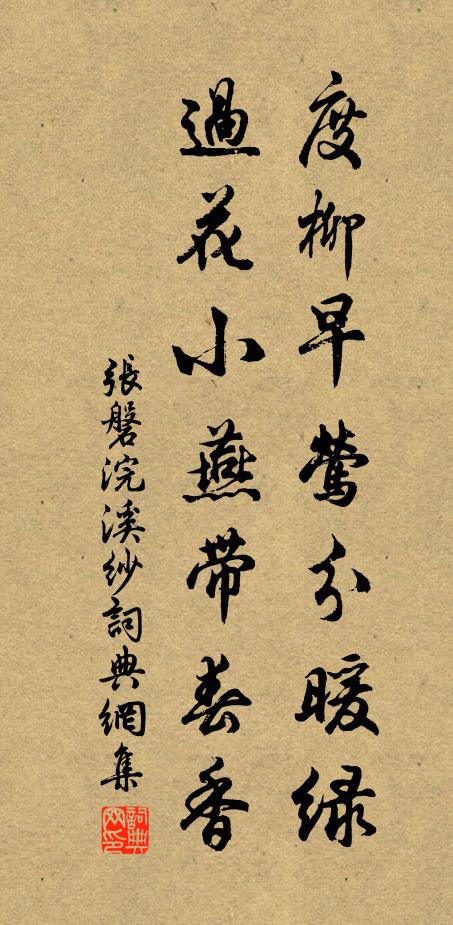 度柳早鶯分暖綠
過花小燕帶春香
張磐浣溪紗詞典網集
詞典网印